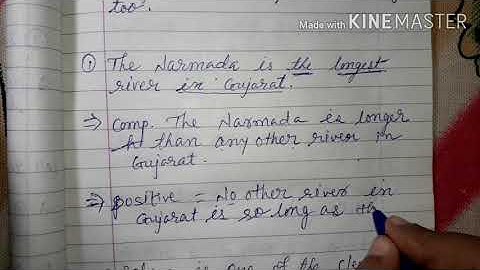 too.
Made with KINEMASTER
① The Narmada is the longest
river in Gujarat.
⇒ Comp. The Narmada is longer
than any other river in
Gujarat.
⇒ positive = No other river in
Gujarat is so long as the
is one of the